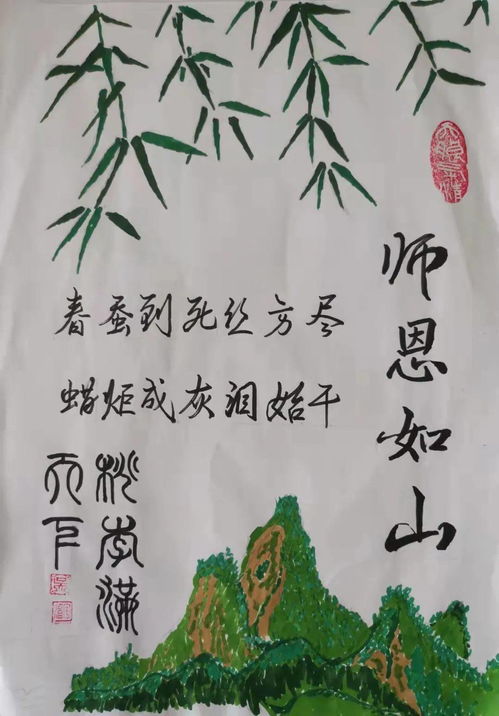 师恩如山
春蚕到死丝方尽
蜡炬成灰泪始干
桃李满
天下